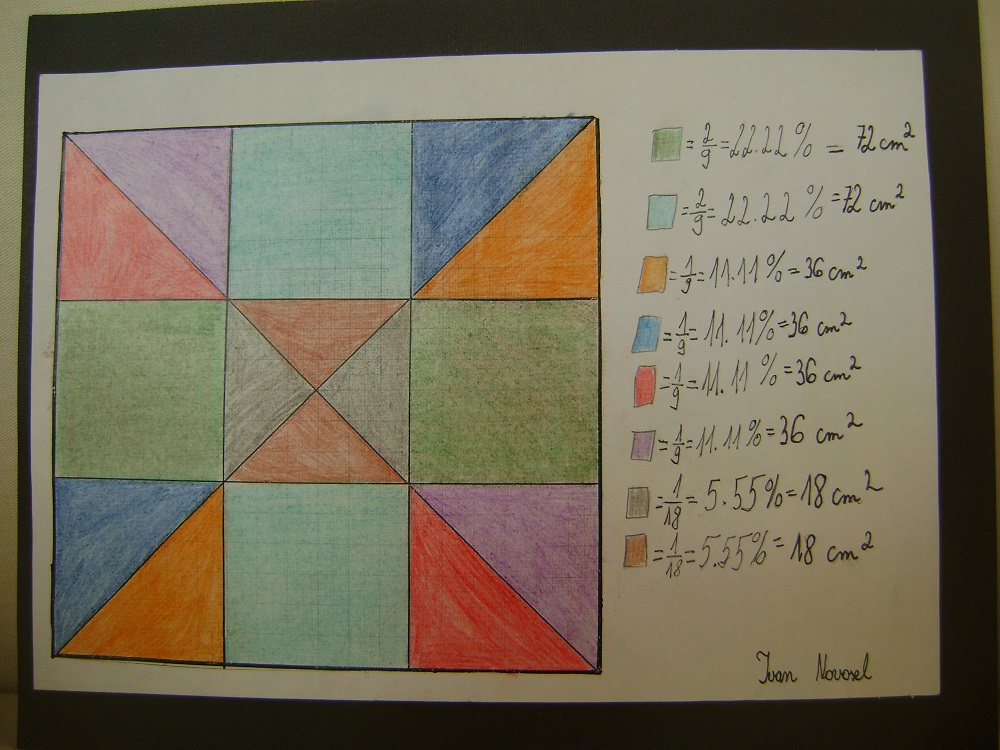 = 2/9 = 22.22 % = 72 cm²
= 2/9 = 22.22 % = 72 cm²
= 1/9 = 11.11 % = 36 cm²
= 1/9 = 11.11% = 36 cm²
= 1/9 = 11.11 % = 36 cm²
= 1/9 = 11.11% = 36 cm²
= 1/18 = 5.55% = 18 cm²
= 1/18 = 5.55% = 18 cm²
Ivan Novosel